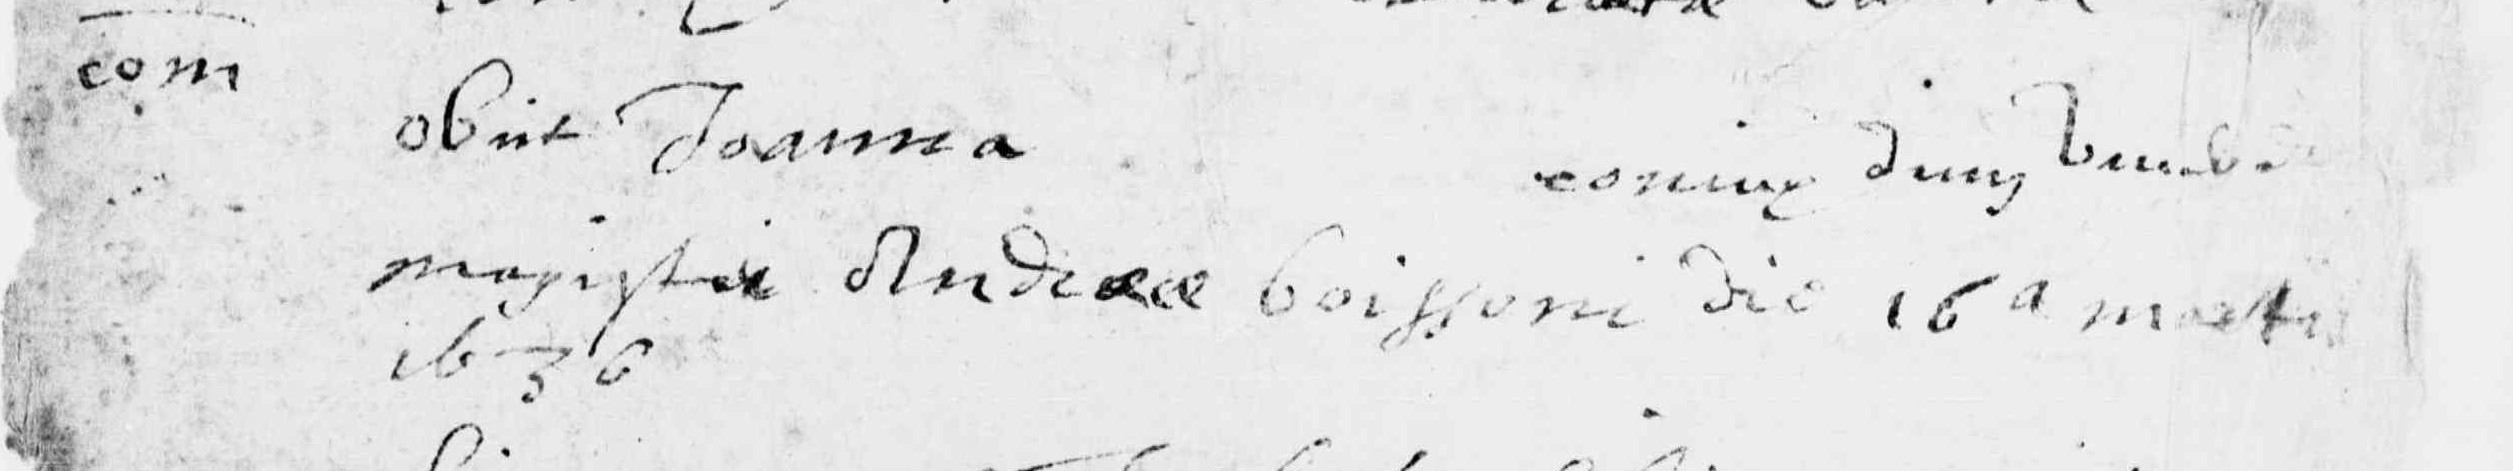 com
obiit Joanna coniux dum
magistri Andreae boissoni die 16 a martii
1636